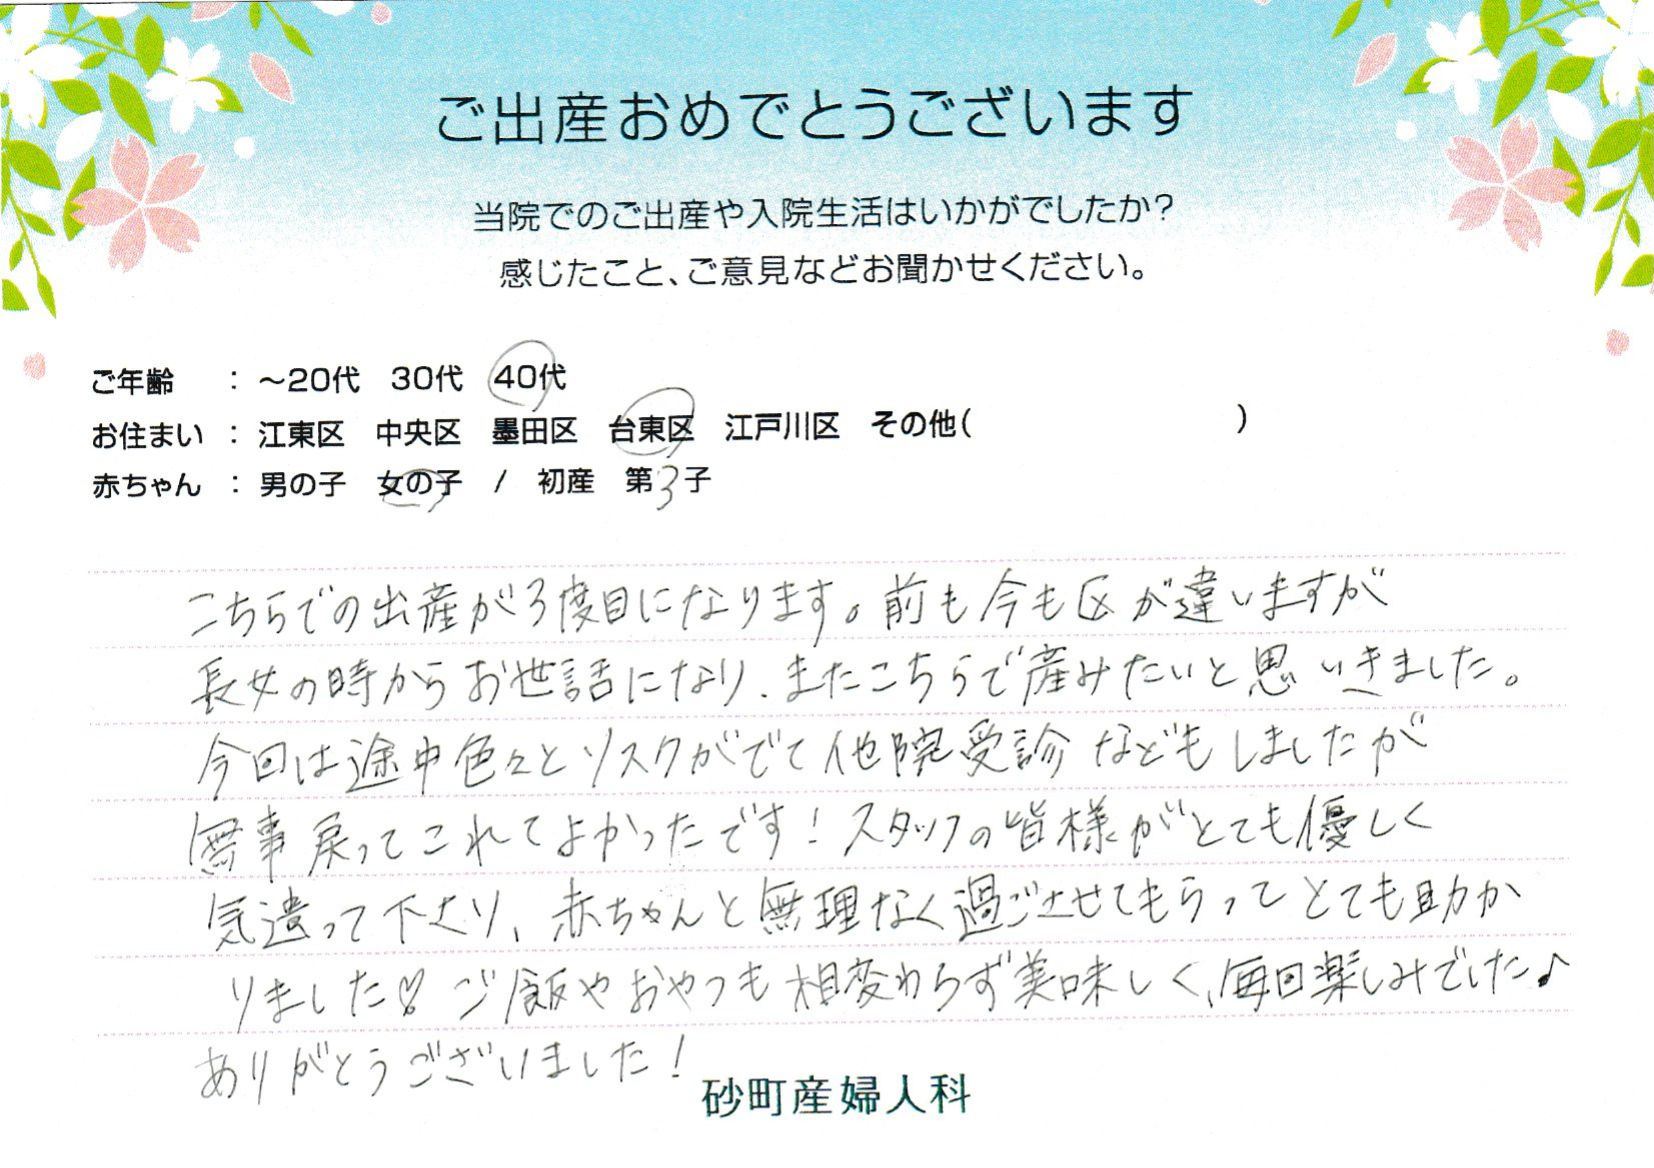 ご出産おめでとうございます
当院でのご出産や入院生活はいかがでしたか?
感じたこと、ご意見などお聞かせください。
ご年齢 : ～20代 30代 40代
お住まい : 江東区 中央区 墨田区 台東区 江戸川区 その他( )
赤ちゃん : 男の子 女の子 / 初産 第3子
こちらでの出産が3度目になります。前も今も区が違いますが
長女の時からお世話になり、またこちらで産みたいと思いきました。
今回は途中色々とリスクがでて他院受診などもしましたが
無事戻ってこれてよかったです!スタッフの皆様がとても優しく
気遣って下さり、赤ちゃんと無理なく過ごさせてもらってとても助か
りました♡ ご飯やおやつも相変わらず美味しく、毎回楽しみでした♪
ありがとうございました!
砂町産婦人科